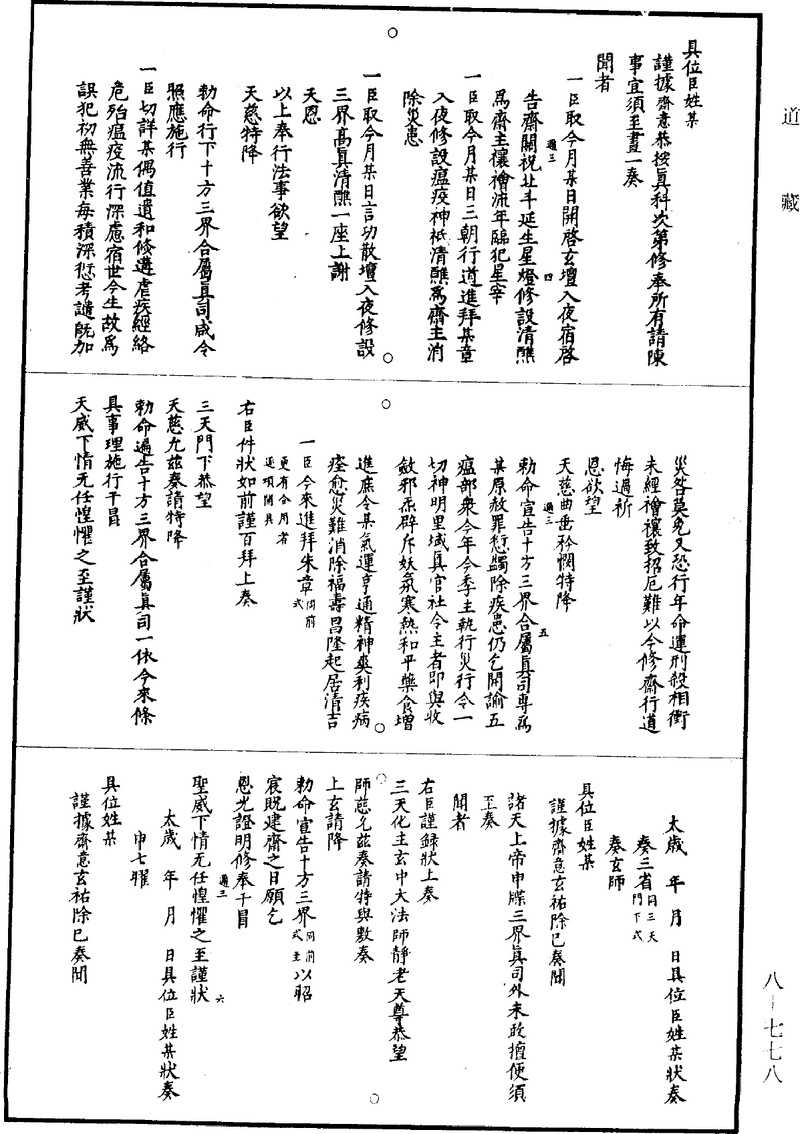 道藏
具位臣姓某
謹據齋意恭按真科次第修奉所有請陳
事宜須至晝一奏
聞者
一臣取今月某日開啓玄壇入夜宿啓
告齋關祝北斗延生星燈修設清醮
爲齋主禳禬流年臨犯星宰
一臣取今月某日三朝行道進拜某章
入夜修設瘟疫神祇清醮爲齋主消
除災患
一臣取今月某日言功散壇入夜修設
三界高真清醮一座上謝
天恩
以上奉行法事欲望
天慈特降
勅命行下十方三界合屬真司咸令
照應施行
一臣切詳某偶值遺和倐遘虐疾經絡
危殆瘟疫流行深慮宿世今生故爲
誤犯初無善業每積深愆考譴既加
災咎莫免又恐行年命運刑殺相衝
未經禬禳致招厄難以今修齋行道
悔過祈
恩欲望
天慈曲垂矜憫特降
勅命宣告十方三界合屬真司專爲
某原赦罪愆蠲除疾患仍乞開諭五
瘟部衆今年今季主執行災行令一
切神明里域真官社令主者即與收
斂邪炁辟斥妖氛寒熱和平藥食增
進庶令某氣運亨通精神爽利疾病
痊愈災難消除福壽昌隆起居清吉
一臣今來進拜朱章同前式
更有合用者
逐項開具
右臣件狀如前謹百拜上奏
三天門下恭望
天慈允兹奏請特降
勅命遍告十方三界合屬真司一依今來條
具事理施行干冒
天威下情无任惶懼之至謹狀
太歲 年 月 日具位臣姓某狀奏
奏三省同三天門下式
奏玄師
具位臣姓某
謹據齋意玄祐除已奏聞
諸天上帝申牒三界真司外未敢擅便須
至奏
聞者
右臣謹録狀上奏
三天化主玄中大法師靜老天尊恭望
師慈允兹奏請特與敷奏
上玄請降
勅命宣告十方三界同前式至以昭
宸貺建齋之日願乞
恩光證明修奉干冒
聖威下情无任惶懼之至謹狀
太歲 年 月 日具位臣姓某狀奏
申七曜
具位姓某
謹據齋意玄祐除已奏聞
週三
四
週三
五
週三
六
八-七七八